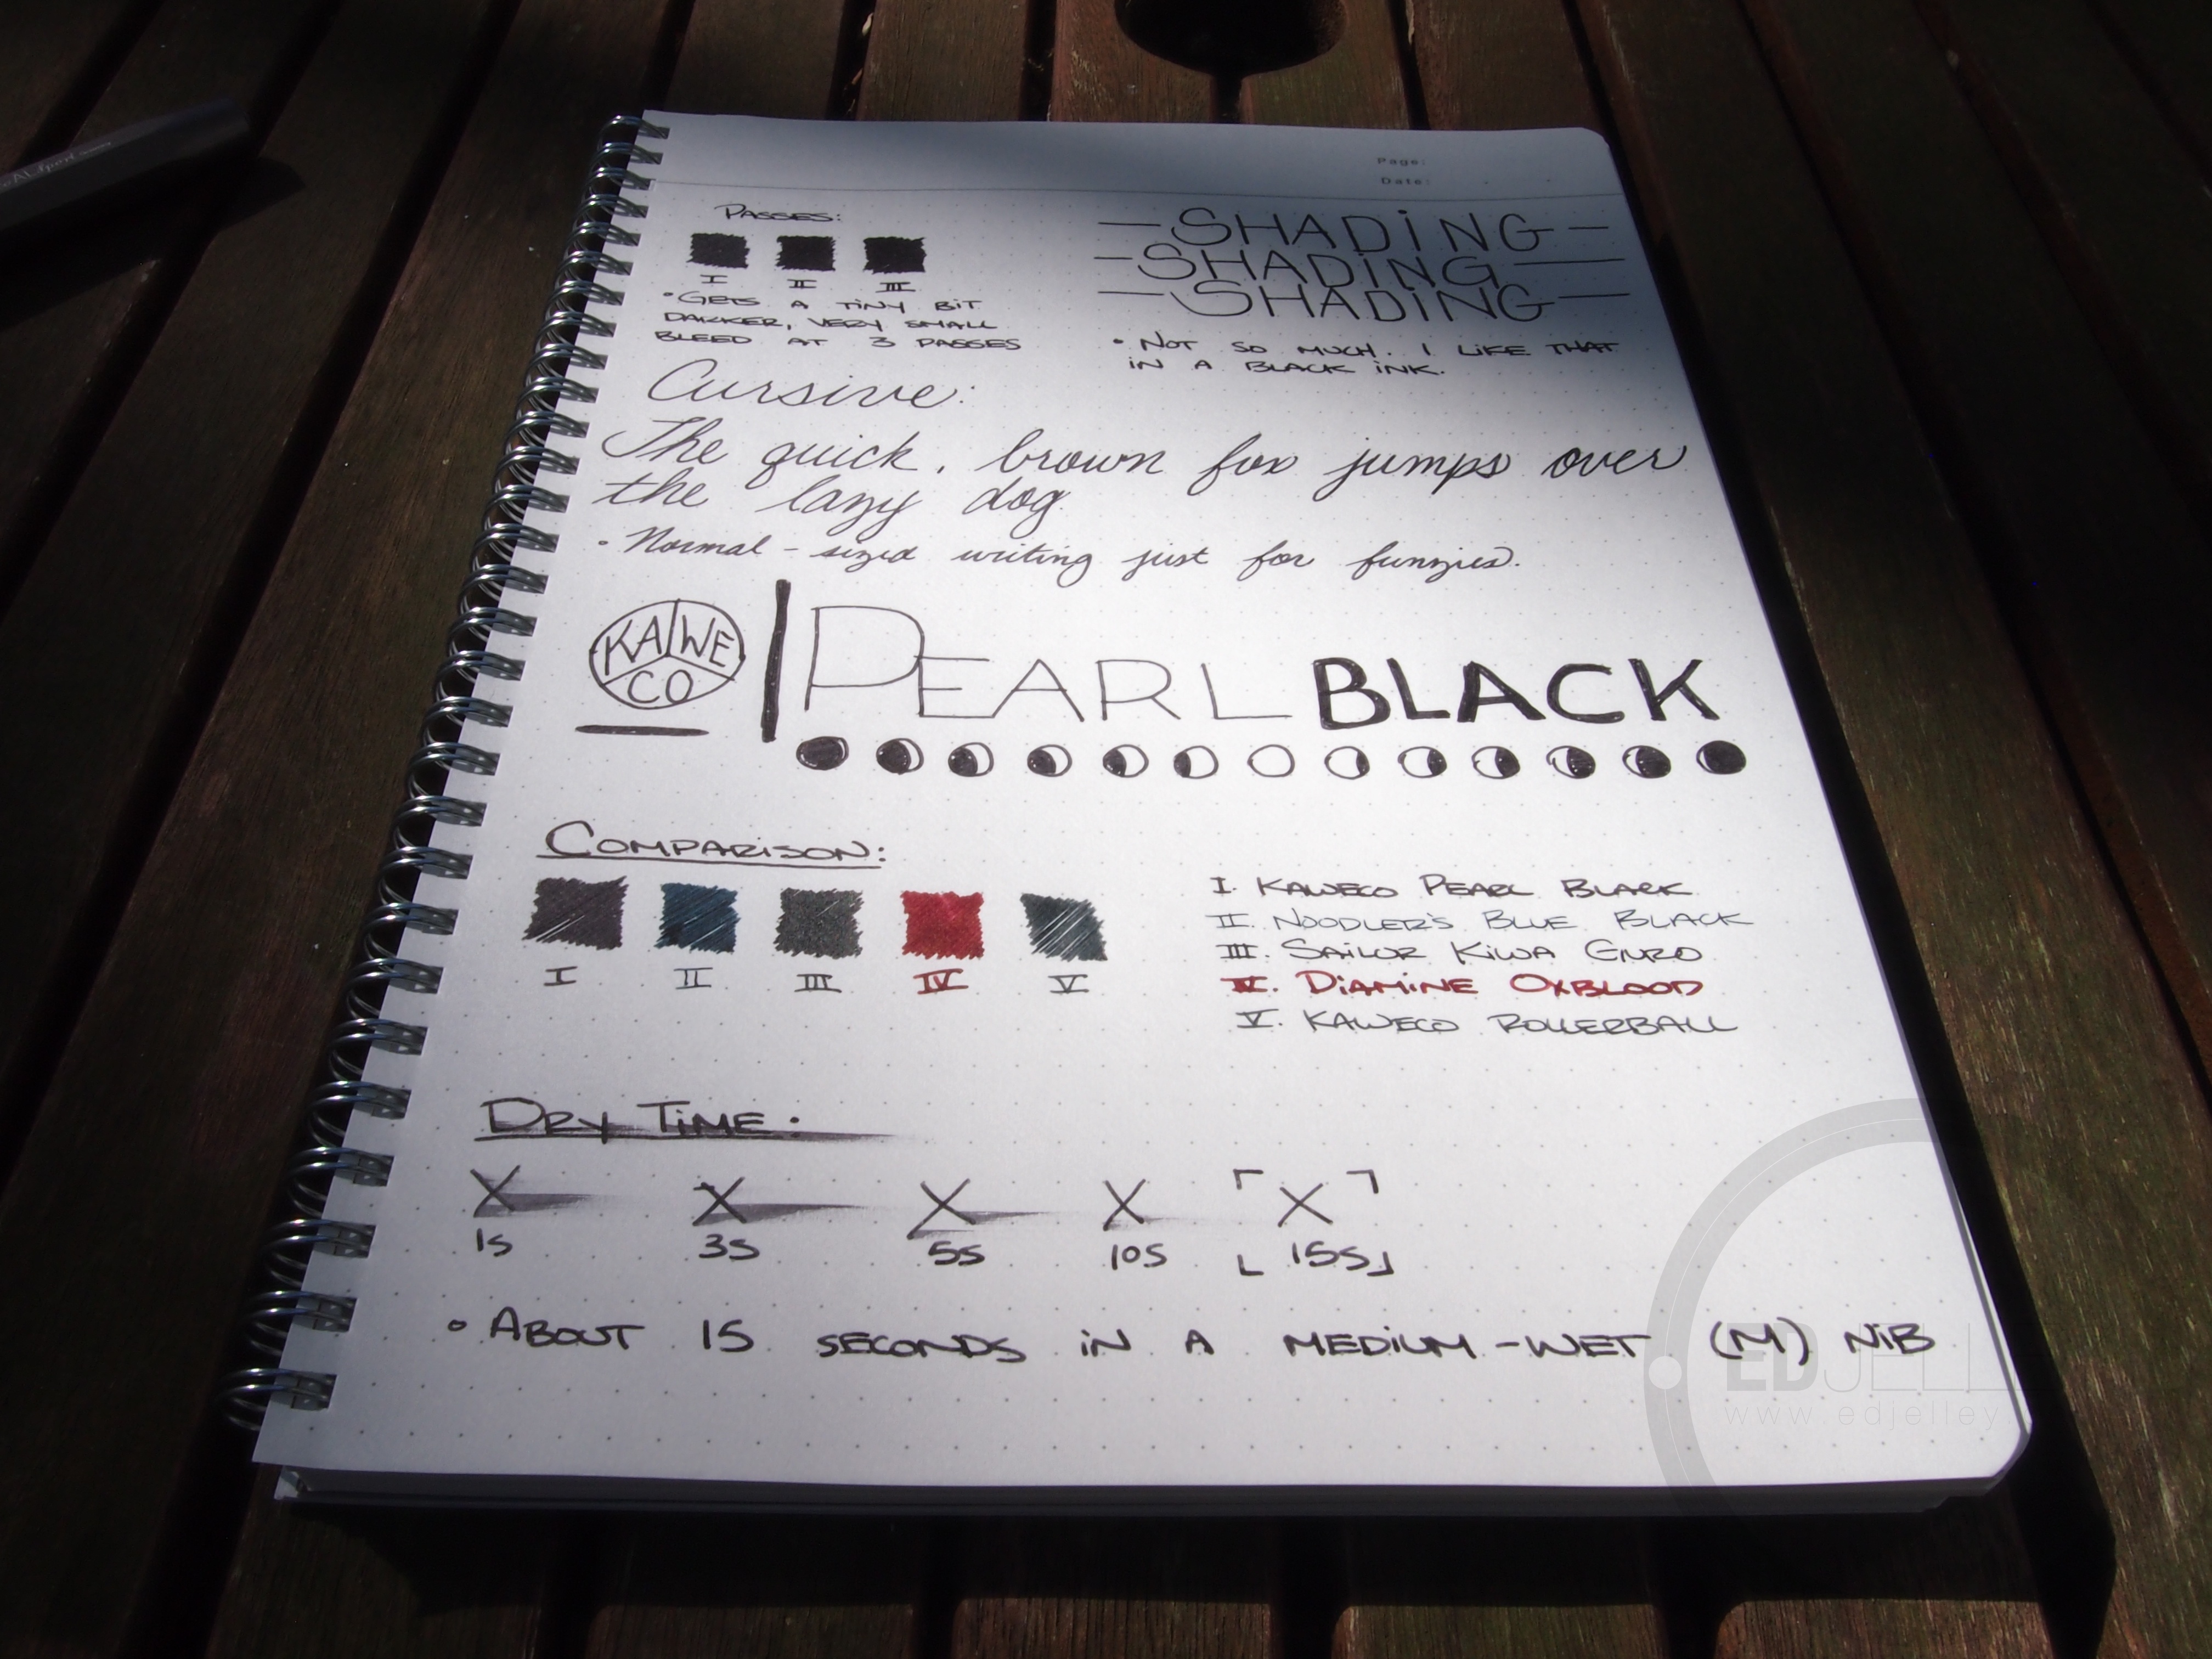 Page:
Date:
PASSES:
I II III
• GETS A TINY BIT
DARKER, VERY SMALL
BLEED AT 3 PASSES
—SHADING—
—SHADING—
—SHADING—
• NOT SO MUCH. I LIKE THAT
IN A BLACK INK.
Cursive:
The quick, brown fox jumps over
the lazy dog
• Normal-sized writing just for funzies.
KAWE
CO
PEARL BLACK
COMPARISON:
I II III IV V
I. KAWECO PEARL BLACK
II. NOODLER'S BLUE BLACK
III. SAILOR KIWA GURO
IV. DIAMINE OXBLOOD
V. KAWECO ROLLERBALL
DRY TIME:
X X X X X
1S 3S 5S 10S 15S
• ABOUT 15 SECONDS IN A MEDIUM-WET (M) NIB
EDJELL
www.edjelley